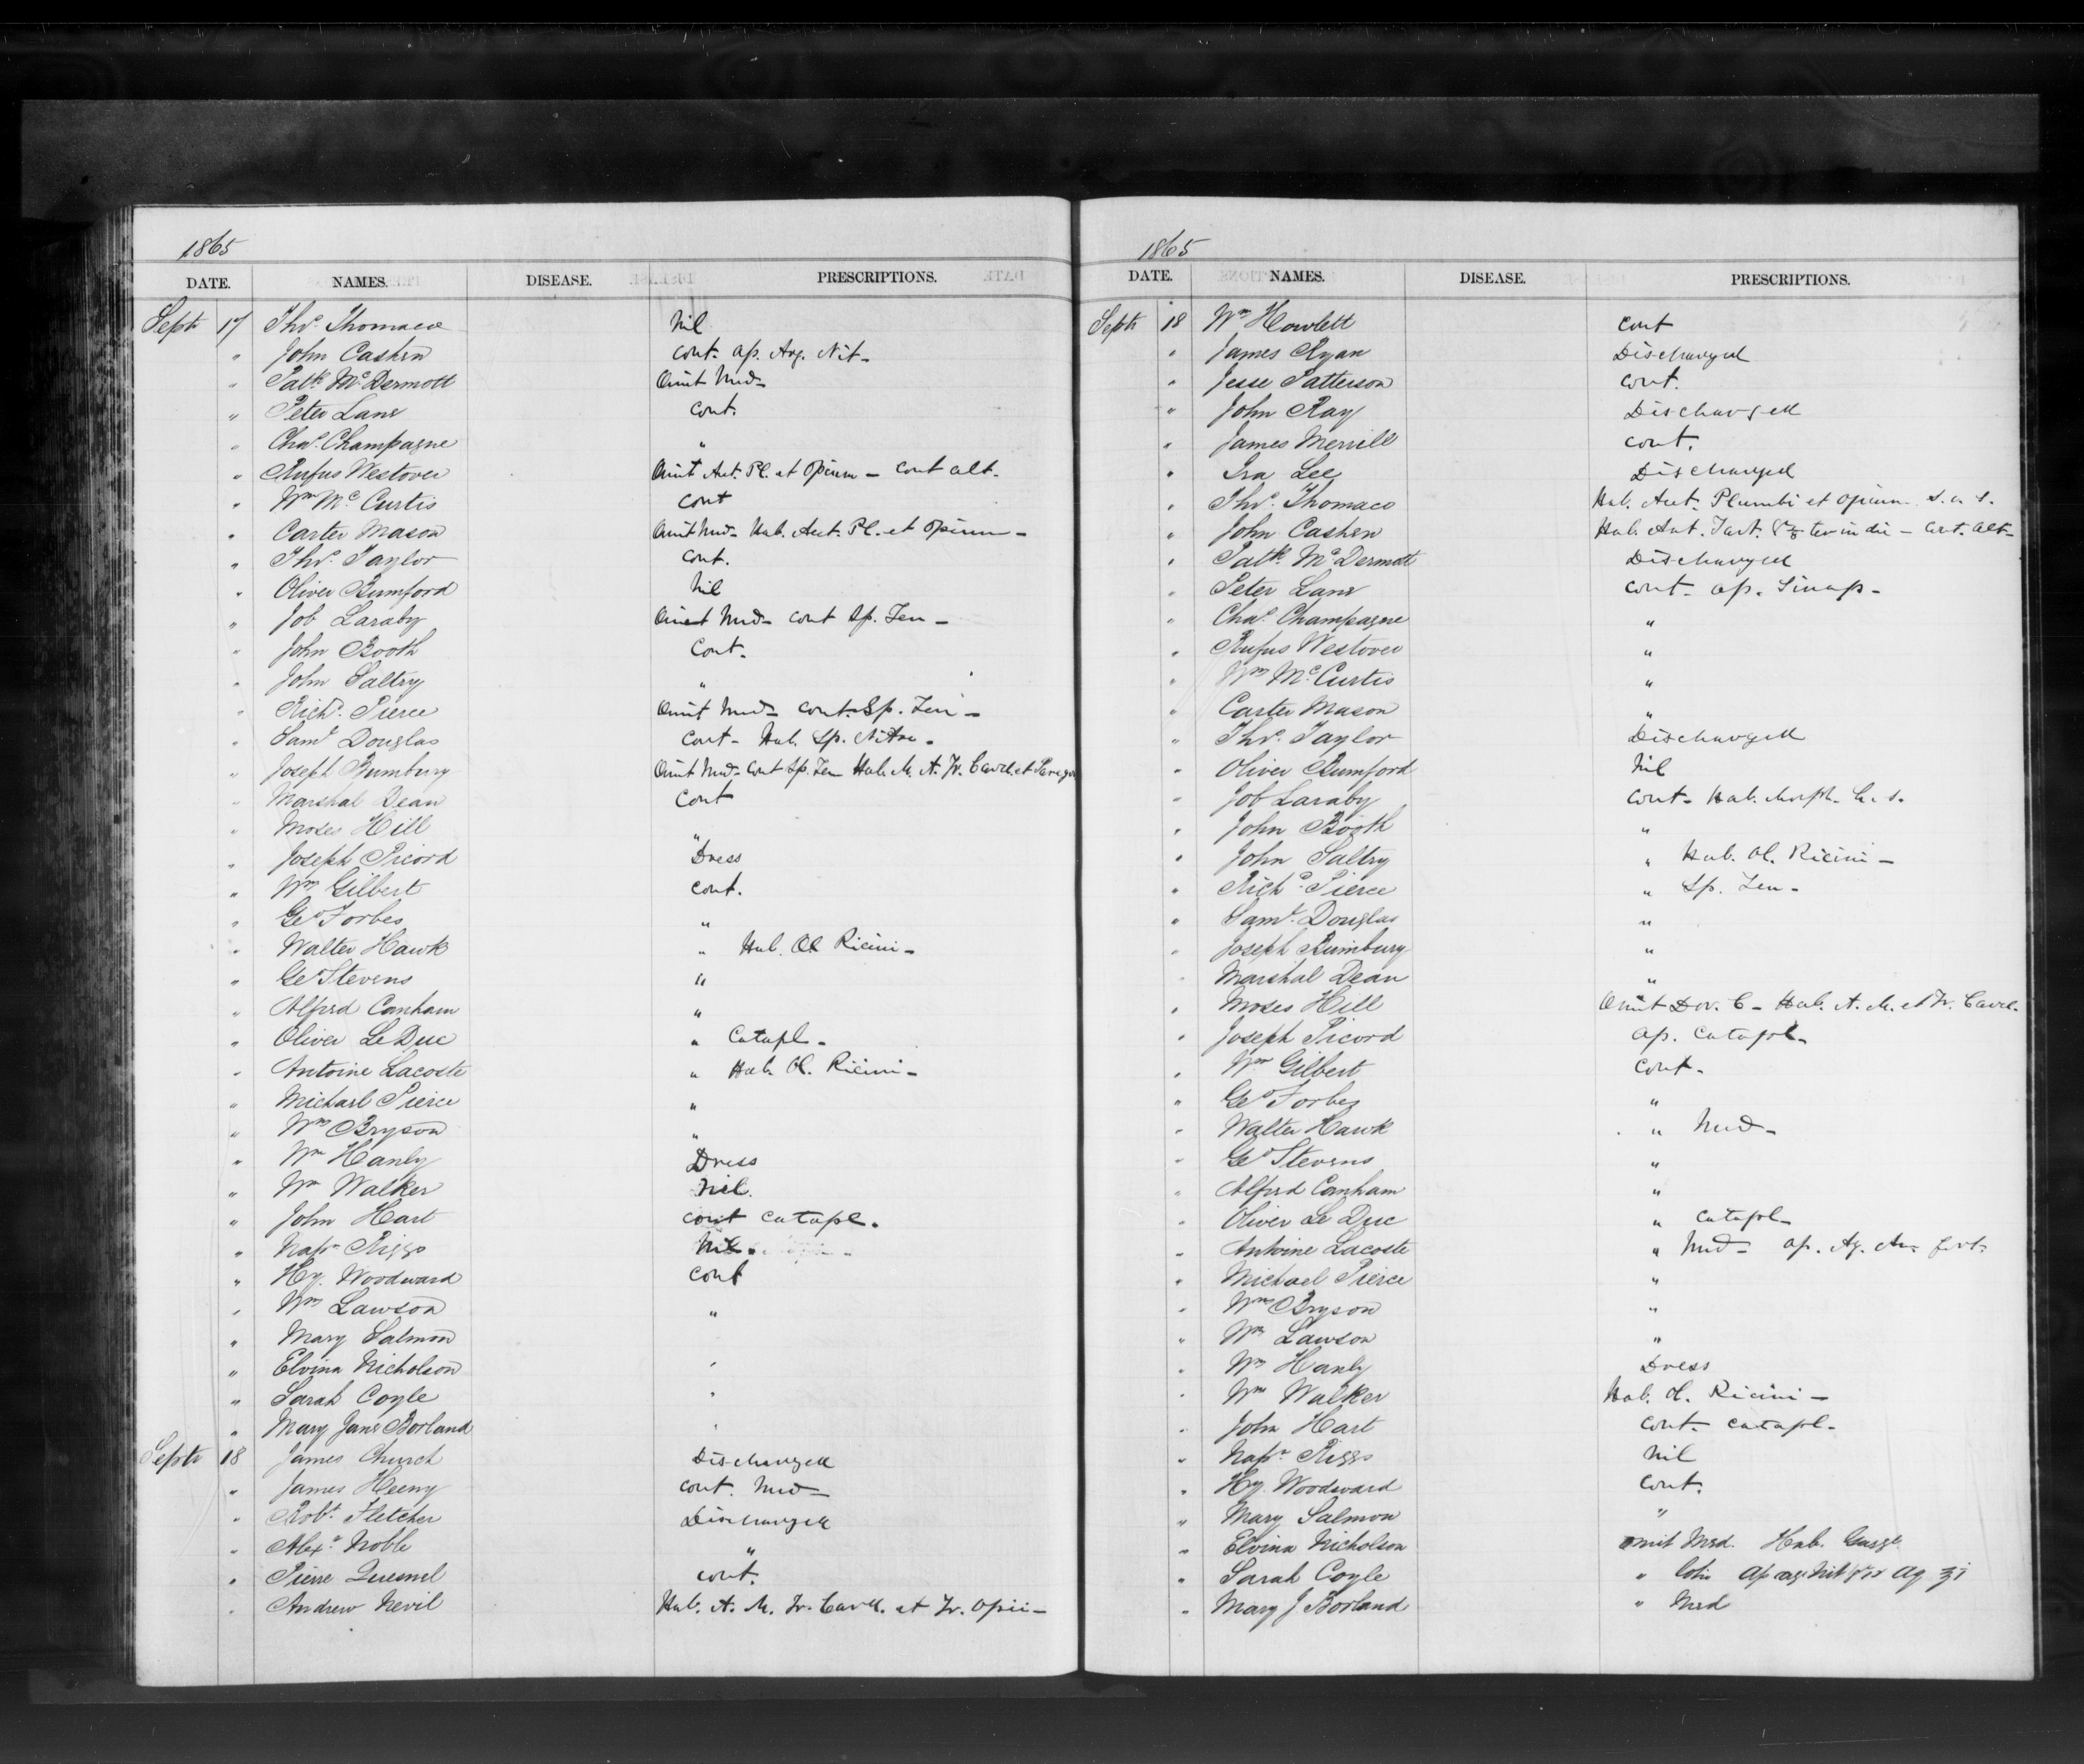 1865
DATE. NAMES. DISEASE. PRESCRIPTIONS.
Septr 17 Thos. Thomaco Nil
" John Cashen Cont. ap. Arg. Nit-
" Patk. McDermott Omit Med-
" Peter Lane Cont.
" Chas. Champagne "
" Rufus Westover Omit Acet. Pl. et Opium - Cont alt.
" Wm McCurtis Cont
" Carter Mason Omit Med- Hab. Acet. Pl. et Opium -
" Thos. Taylor Cont.
" Oliver Bumford Nil
" Job Laraby Omit Med- Cont Sp. Fru -
" John Booth Cont.
" John Saltry "
" Richd. Pierce Omit Med- Cont. Sp. Fru -
" Saml. Douglas Cont- Hab. Sp. Nitre.
" Joseph Bumbury Omit Med- Cont Sp. Fru Hab. M. A. Tr. Card. et Paregor
" Marshal Dean Cont
" Moses Hill "
" Joseph Picord Dress
" Wm Gilbert Cont.
" Geo Forbes "
" Walter Hawk " Hab. Ol Ricini-
" Geo Stevens "
" Alfred Canham "
" Oliver LeDuc " Catapl-
" Antoine Lacoste " Hab. Ol. Ricini-
" Michael Pierce "
" Wm Bryson "
" Wm Hanly Dress
" Wm Walker Nil.
" John Hart Cont Catapl.
" Napn Riggs Nil.
" Hy. Woodward Cont
" Wm Lawson "
" Mary Salmon
" Elvina Nicholson "
" Sarah Coyle "
" Mary Jane Borland "
Septr 18 James Church Discharged
" James Heeny Cont. Med-
" Robt. Fletcher Discharged
" Alexr. Noble "
" Pierre Quesnel Cont.
" Andrew Nevil Hab. A. M. Tr. Card. et Tr. Opii-
1865
DATE. NAMES. DISEASE. PRESCRIPTIONS.
Septr 18 Wm Howlett Cont
" James Ryan Discharged
" Jesse Patterson Cont.
" John Ray Discharged
" James Merrill Cont.
" Ira Lee Discharged
" Thos. Thomaco Hab. Acet. Plumbi et Opium s. a. s.
" John Cashen Hab. Ant. Tart. ter in die - Alt-
" Patk. McDermott Discharged
" Peter Lane Cont- ap. Sinap-
" Chas. Champagne "
" Rufus Westover "
" Wm McCurtis "
" Carter Mason "
" Thos. Taylor Discharged
" Oliver Bumford Nil
" Job Laraby Cont- Hab. Morph. h. s.
" John Booth "
" John Saltry " Hab. Ol. Ricini-
" Richd. Pierce " Sp. Fru-
" Saml. Douglas "
" Joseph Bumbury "
" Marshal Dean "
" Moses Hill Omit Dov. C- Hab. A. M. et Tr. Card.
" Joseph Picord ap. Catapl-
" Wm Gilbert Cont-
" Geo Forbes "
" Walter Hawk " Med-
" Geo Stevens "
" Alfred Canham "
" Oliver Le Duc " Catapl-
" Antoine Lacoste " Med- ap. Aq. fort-
" Michael Pierce "
" Wm Bryson "
" Wm Lawson "
" Wm Hanly Dress
" Wm Walker Hab. Ol. Ricini-
" John Hart Cont- Catapl-
" Napn. Riggs Nil
" Hy. Woodward Cont.
" Mary Salmon "
" Elvina Nicholson Omit Med. Hab. Gargle
" Sarah Coyle " Lotio Ap arg Nit gr iv Aq ʒi
" Mary J Borland " Med